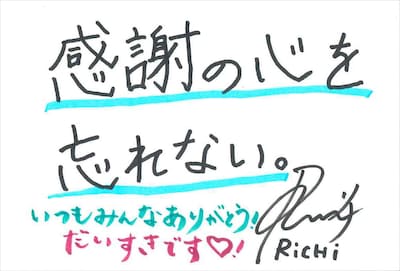 感謝の心を
忘れない。
いつもみんなありがとう!
だいすきです♡!
RiCHi